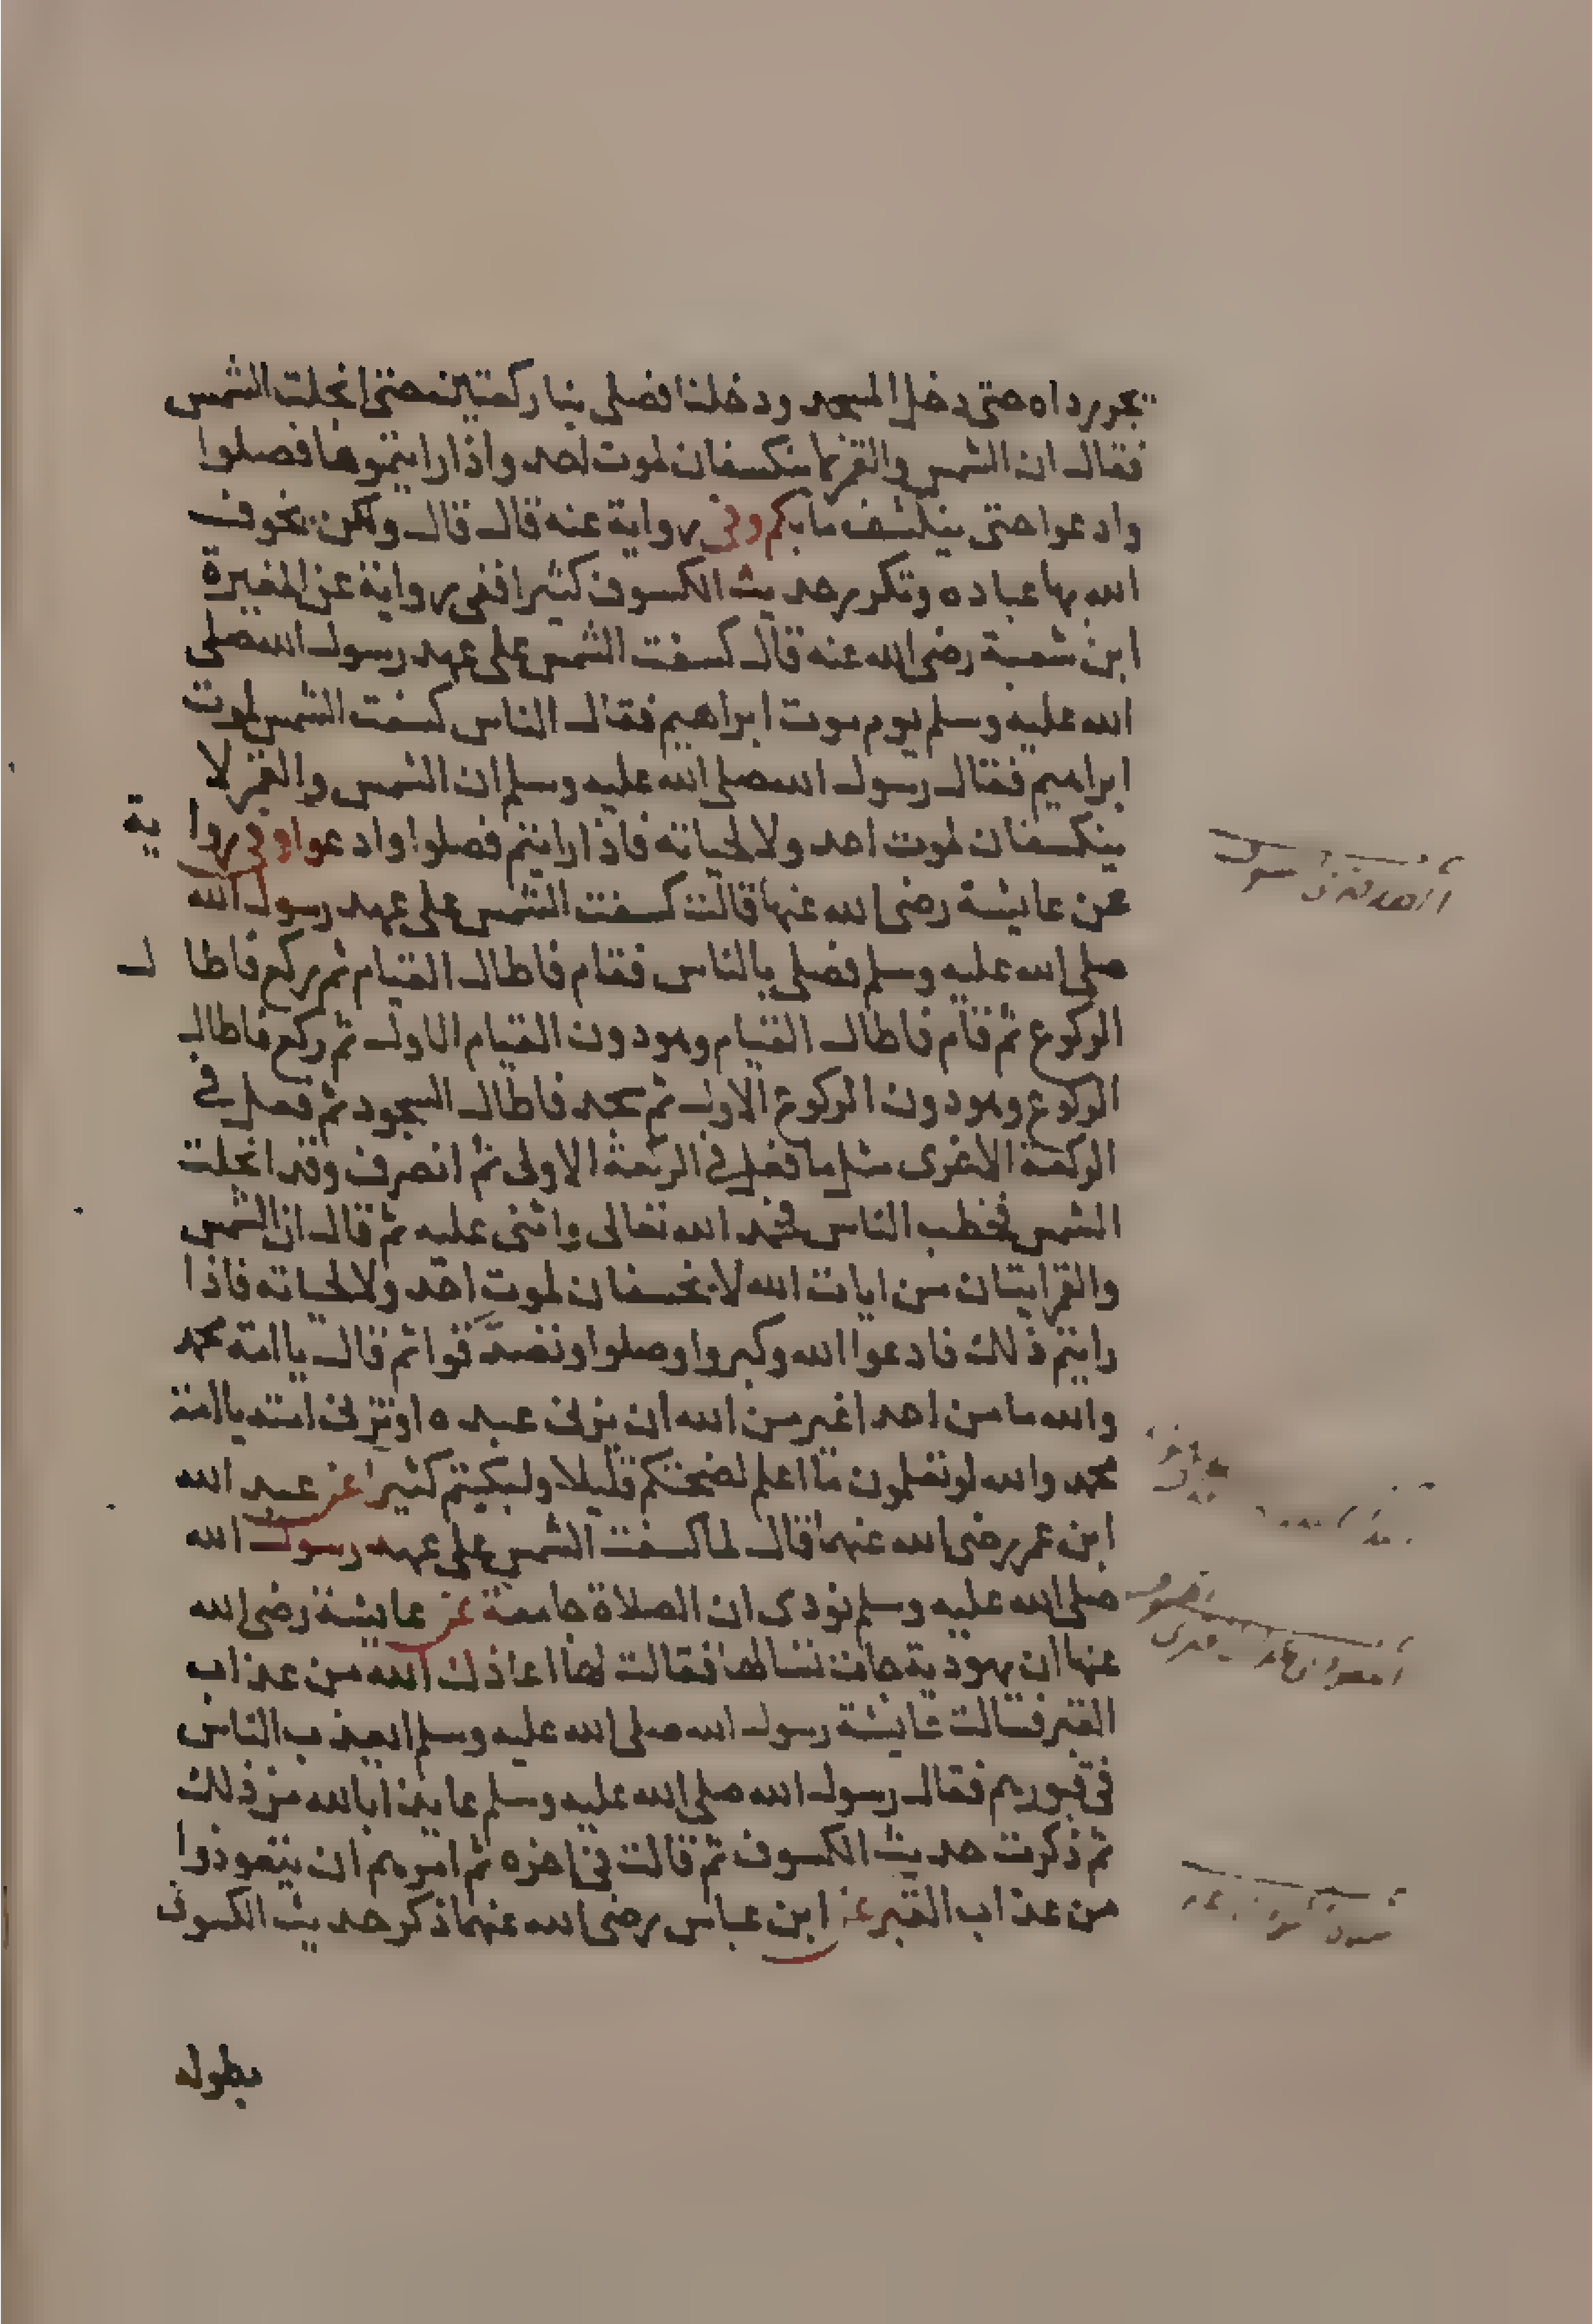 يجر رداه حتى دخل المسجد ودخلنا فصلى بنا ركعتين حتى انجلت الشمس
فقال ان الشمس والقمر لا ينكسفان لموت احد واذا رايتموها فصلوا
وادعوا حتى ينكشف ما بكم وفى رواية عنه قال قال ولكن يخوف
الله بها عباده وتكرر حديث الكسوف كثيرا ففى رواية عن المغيرة
ابن شعبة رضى الله عنه قال كسفت الشمس على عهد رسول الله صلى
الله عليه وسلم يوم موت ابراهيم فقال الناس كسفت الشمس لموت
ابراهيم فقال رسول الله صلى الله عليه وسلم ان الشمس والقمر لا
ينكسفان لموت احد ولا لحياته فاذا رايتم فصلوا وادعوا وفى روا ية
عن عايشة رضى الله عنها قالت كسفت الشمس على عهد رسول الله
صلى الله عليه وسلم فصلى بالناس فقام فاطال القيام ثم ركع فاطا ل
الركوع ثم قام فاطال القيام وهو دون القيام الاول ثم ركع فاطال
الركوع وهو دون الركوع الاول ثم سجد فاطال السجود ثم فعل فى
الركعة الاخرى مثل ما فعل فى الركعة الاولى ثم انصرف وقد انجلت
الشمس فخطب الناس فحمد الله تعالى واثنى عليه ثم قال ان الشمس
والقمر ايتان من ايات الله لا يخسفان لموت احد ولا لحياته فاذا
رايتم ذلك فادعوا الله وكبروا وصلوا وتصدقوا ثم قال يا امة محمد
والله ما من احد اغير من الله ان يزنى عبده او تزنى امته يا امة
محمد والله لو تعلمون ما اعلم لضحكتم قليلا ولبكيتم كثيرا عن عبد الله
ابن عمر رضى الله عنهما قال لما كسفت الشمس على عهد رسول الله
صلى الله عليه وسلم نودى ان الصلاة جامعة عن عايشة رضى الله
عنها ان يهودية جات تسالها فقالت لها اعاذك الله من عذاب
القبر فسالت عايشة رسول الله صلى الله عليه وسلم ايعذب الناس
فى قبورهم فقال رسول الله صلى الله عليه وسلم عايذا بالله من ذلك
ثم ذكرت حديث الكسوف ثم قالت فى اخره ثم امرهم ان يتعوذوا
من عذاب القبر عن ابن عباس رضى الله عنهما ذكر حديث الكسوف
بطوله